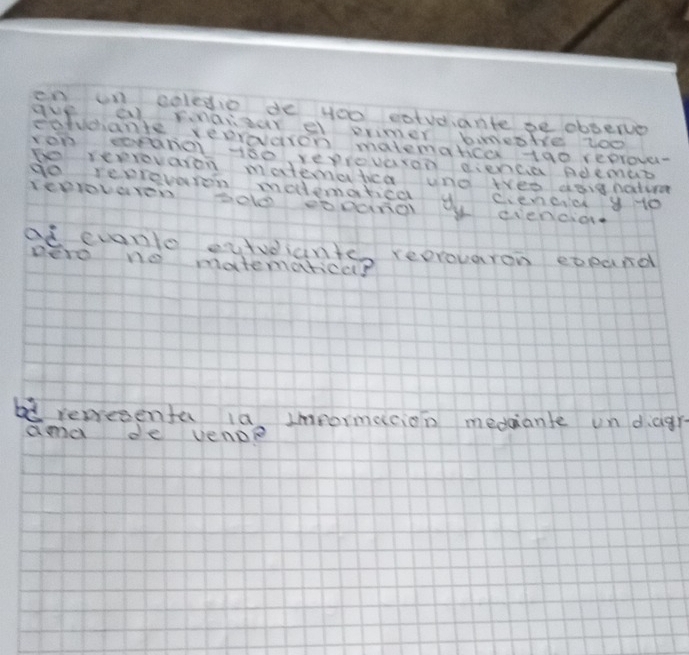 en un colegio de 400 estudiante se observo
que al finaizar el primer bimestre 200
estudiante reprovaron matematica 190 reprova-
ron espanol 180 reprovaron ciencia Ademas
50 reprovaron matematica uno tres asignatura
90 reprovaron matematica y ciencia y 40
reprovaron solo espanol y ciencia.
a¿ cuanto estudiante reprovaron espanol
pero no matematica?
b¿ representa la imformacion mediante un diagr-
ama de venn?